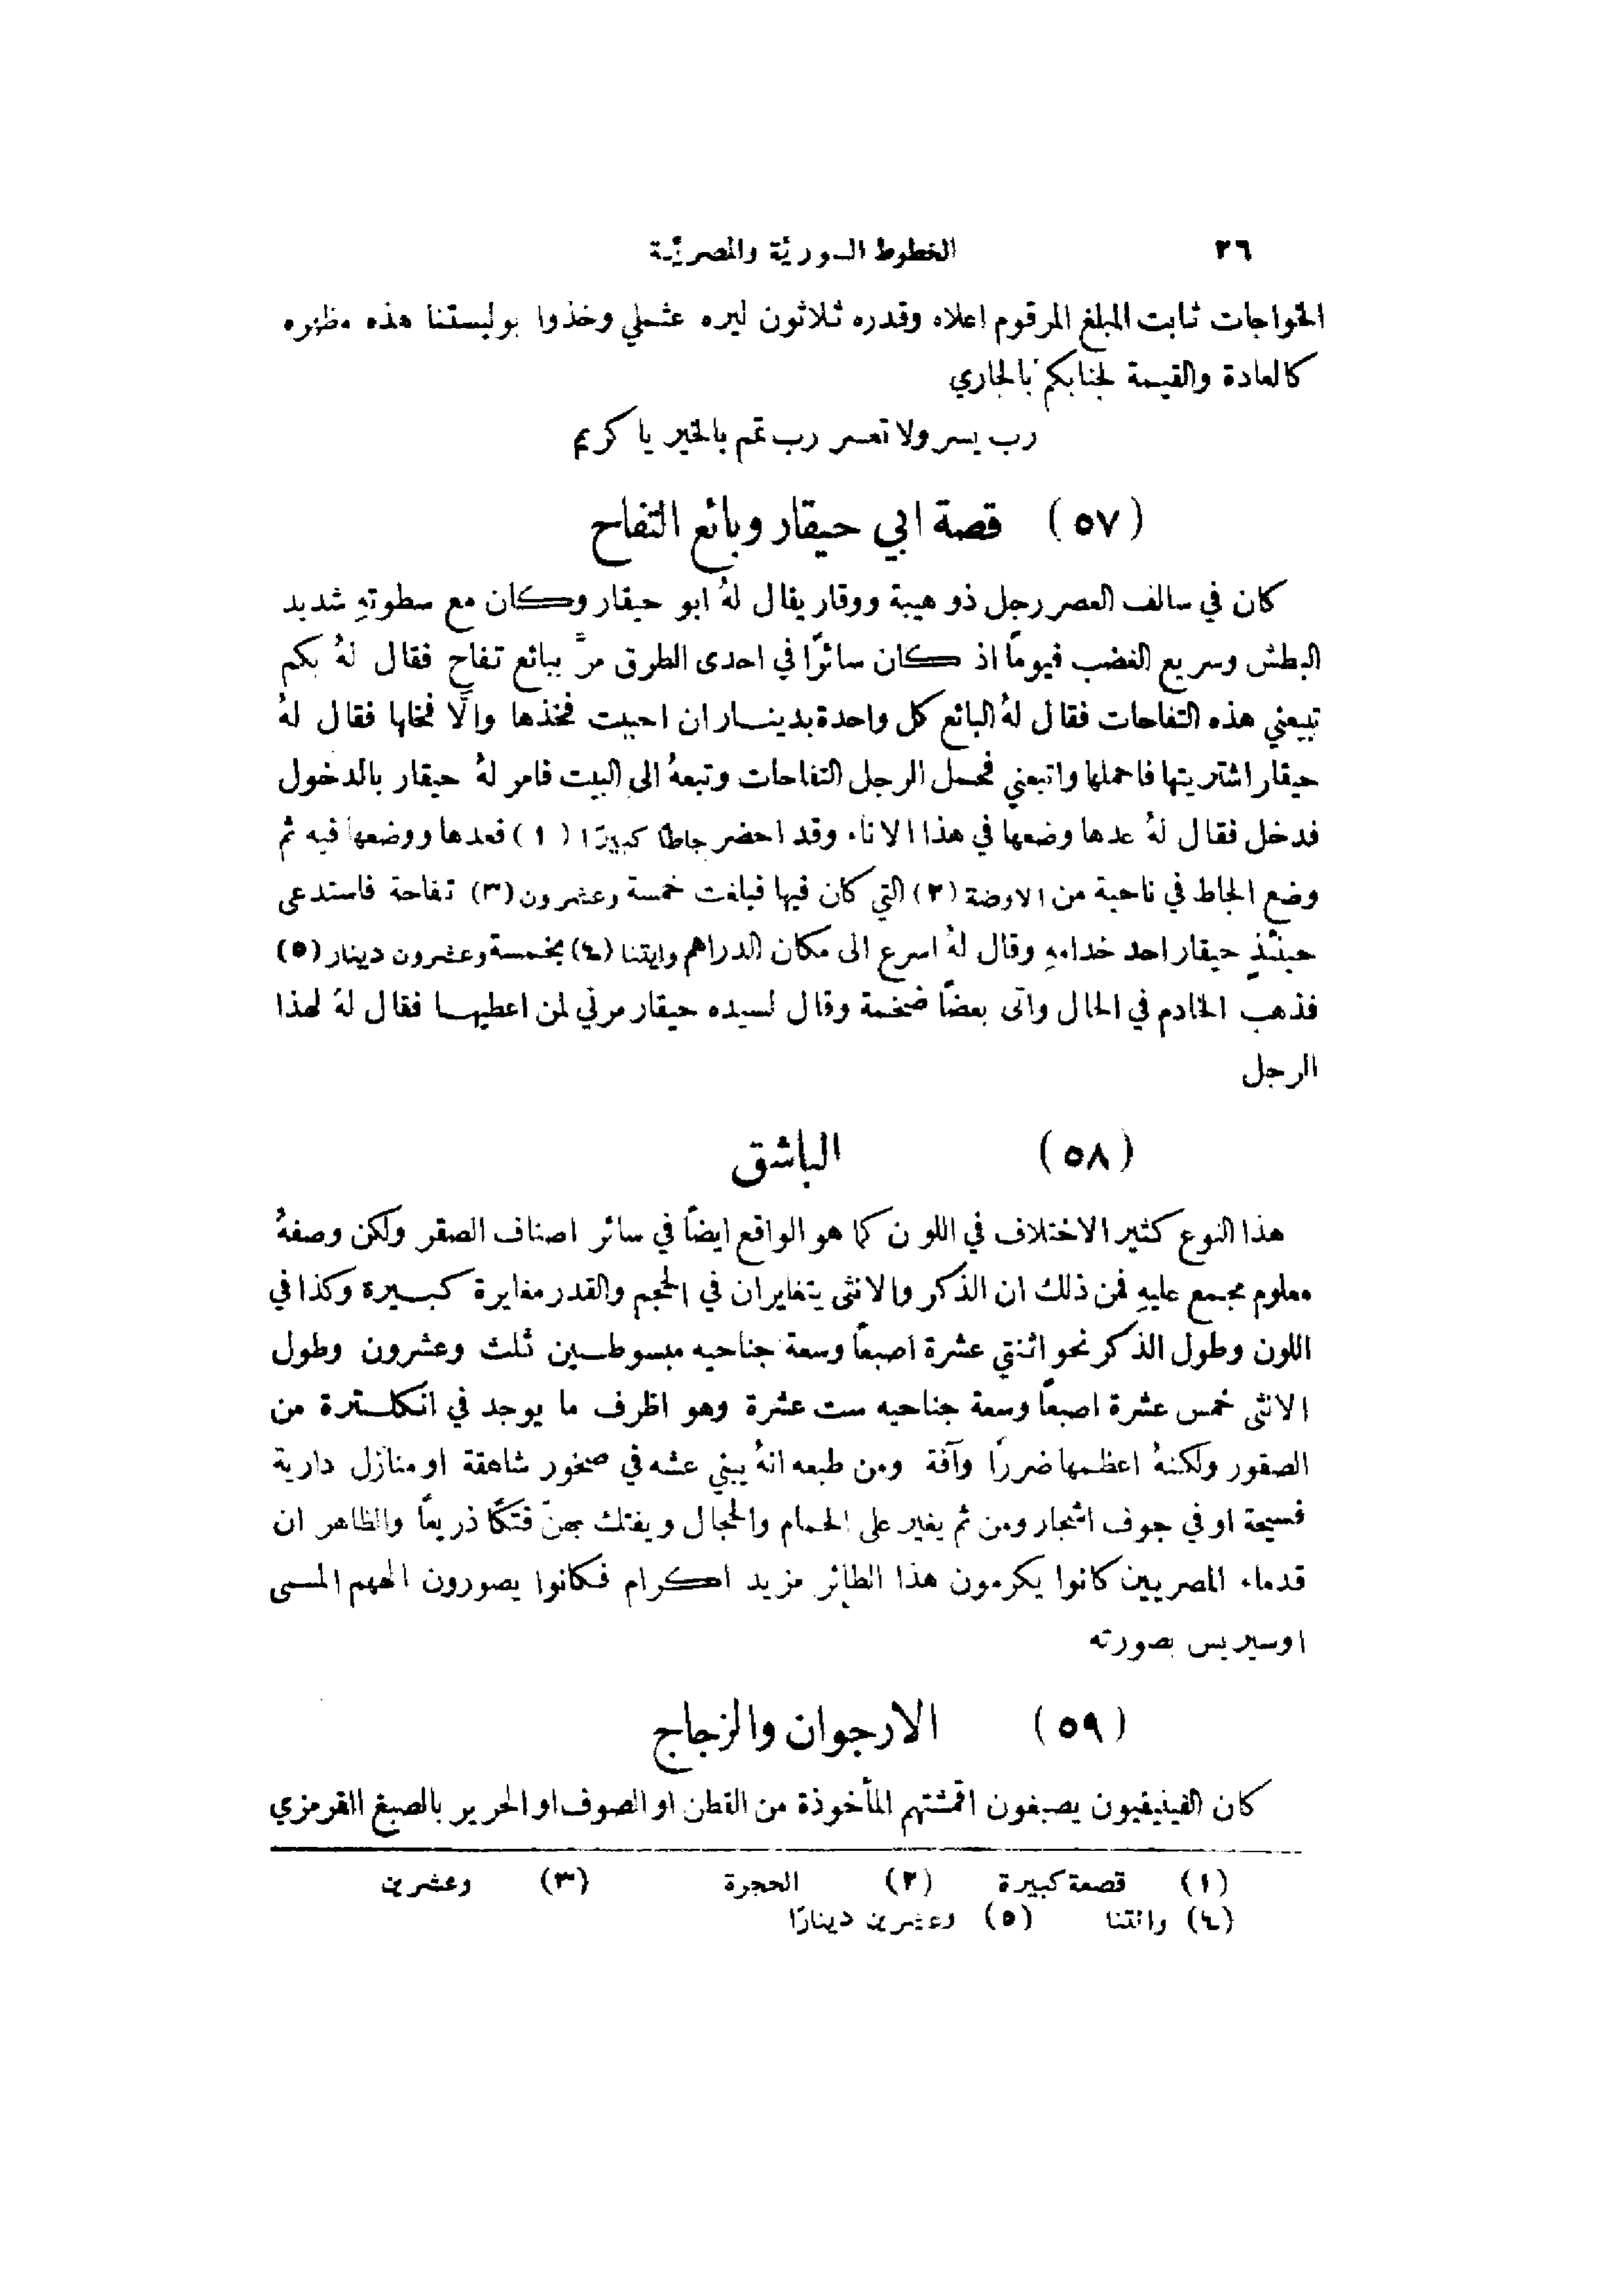 ٢٦ الخطوط السورية والمصرية
الخواجات ثابت المبلغ المرقوم اعلاه وقدره ثلاثون ليره عثملي وخذوا بوليستنا هذه مظهره
كالعادة والقيمة لجنابكم بالجاري
رب يسر ولا تعسر رب تمم بالخير يا كريم
(٥٧) قصة ابي حيقار وبائع التفاح
كان في سالف العصر رجل ذو هيبة ووقار يقال لهُ ابو حيقار وكان مع سطوتهِ شديد
البطش وسريع الغضب فيوماً اذ كان سائرًا في احدى الطرق مرَّ ببائع تفاح فقال لهُ بكم
تبيعني هذه التفاحات فقال لهُ البائع كل واحدة بدينار ان احببت فخذها والَّا فخلها فقال لهُ
حيقار اشتريتها فاحملها واتبعني فحمل الرجل التفاحات وتبعهُ الى البيت فامر لهُ حيقار بالدخول
فدخل فقال لهُ عدها وضعها في هذا الاناء وقد احضر جاطًا كبيرًا (١) فعدها ووضعها فيه ثم
وضع الجاط في ناحية من الاوضة (٢) التي كان فيها فبلغت خمسة وعشرون (٣) تفاحة فاستدعى
حينئذٍ حيقار احد خدامهِ وقال لهُ اسرع الى مكان الدراهم وايتنا (٤) بخمسة وعشرون دينار (٥)
فذهب الخادم في الحال واتى بعضًا ضخمة وقال لسيده حيقار مرني لمن اعطيها فقال لهُ لهذا
الرجل
(٥٨) الباشق
هذا النوع كثير الاختلاف في اللون كما هو الواقع ايضاً في سائر اصناف الصقر ولكن وصفهُ
معلوم مجمع عليهِ فمن ذلك ان الذكر والانثى يتغايران في الحجم والقدر مغايرة كبيرة وكذا في
اللون وطول الذكر نحو اثنتي عشرة اصبعاً وسعة جناحيه مبسوطين ثلث وعشرون وطول
الانثى خمس عشرة اصبعاً وسعة جناحيه ست عشرة وهو اظرف ما يوجد في انكلترة من
الصقور ولكنهُ اعظمها ضررًا وآفة ومن طبعه انهُ يبني عشه في صخور شاهقة او منازل دارية
فسيحة او في جوف اشجار ومن ثم يغير على الحمام والحجال ويفتك بهنّ فتكًا ذريعاً والظاهر ان
قدماء المصريين كانوا يكرمون هذا الطائر مزيد اكرام فكانوا يصورون الههم المسمى
اوسيريس بصورته
(٥٩) الارجوان والزجاج
كان الفينيقيون يصبغون اقمشتهم المأخوذة من القطن او الصوف او الحرير بالصبغ القرمزي
(١) قصعة كبيرة (٢) الحجرة (٣) وعشرين
(٤) وائتنا (٥) وعشرين دينارًا